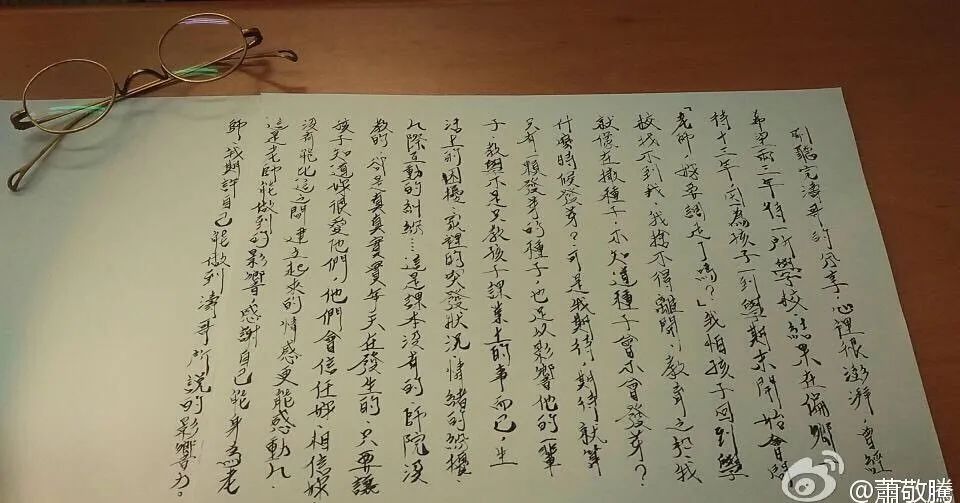 剛聽完濤哥的分享,心裡很澎湃,曾經
希望兩三年待一所學校,結果在偏鄉
待十三年,因為孩子一到學期末開始會問
「老師,妳要調走了嗎?」我怕孩子回到學
校找不到我,我捨不得離開,教育之於我
就像在撒種子,不知道種子會不會發芽?
什麼時候發芽?可是我期待,期待就算
只有一顆發芽的種子,也足以影響他的一輩
子,教與不是只教孩子課業上的事而已,生
活上的困擾,家裡的突發狀況,情緒的紛擾,
人際互動的糾紛...這是課本沒有的,師院沒
教的,卻是真真實實每天在發生的,只要讓
孩子知道妳很愛他們,他們會信任妳,相信妳
沒有能比這之間建立起來的情感更能感動人
這是老師能做到的影響,感謝自己能身為老
師,我期許自己能做到濤哥所說的影響力。
@蕭敬騰